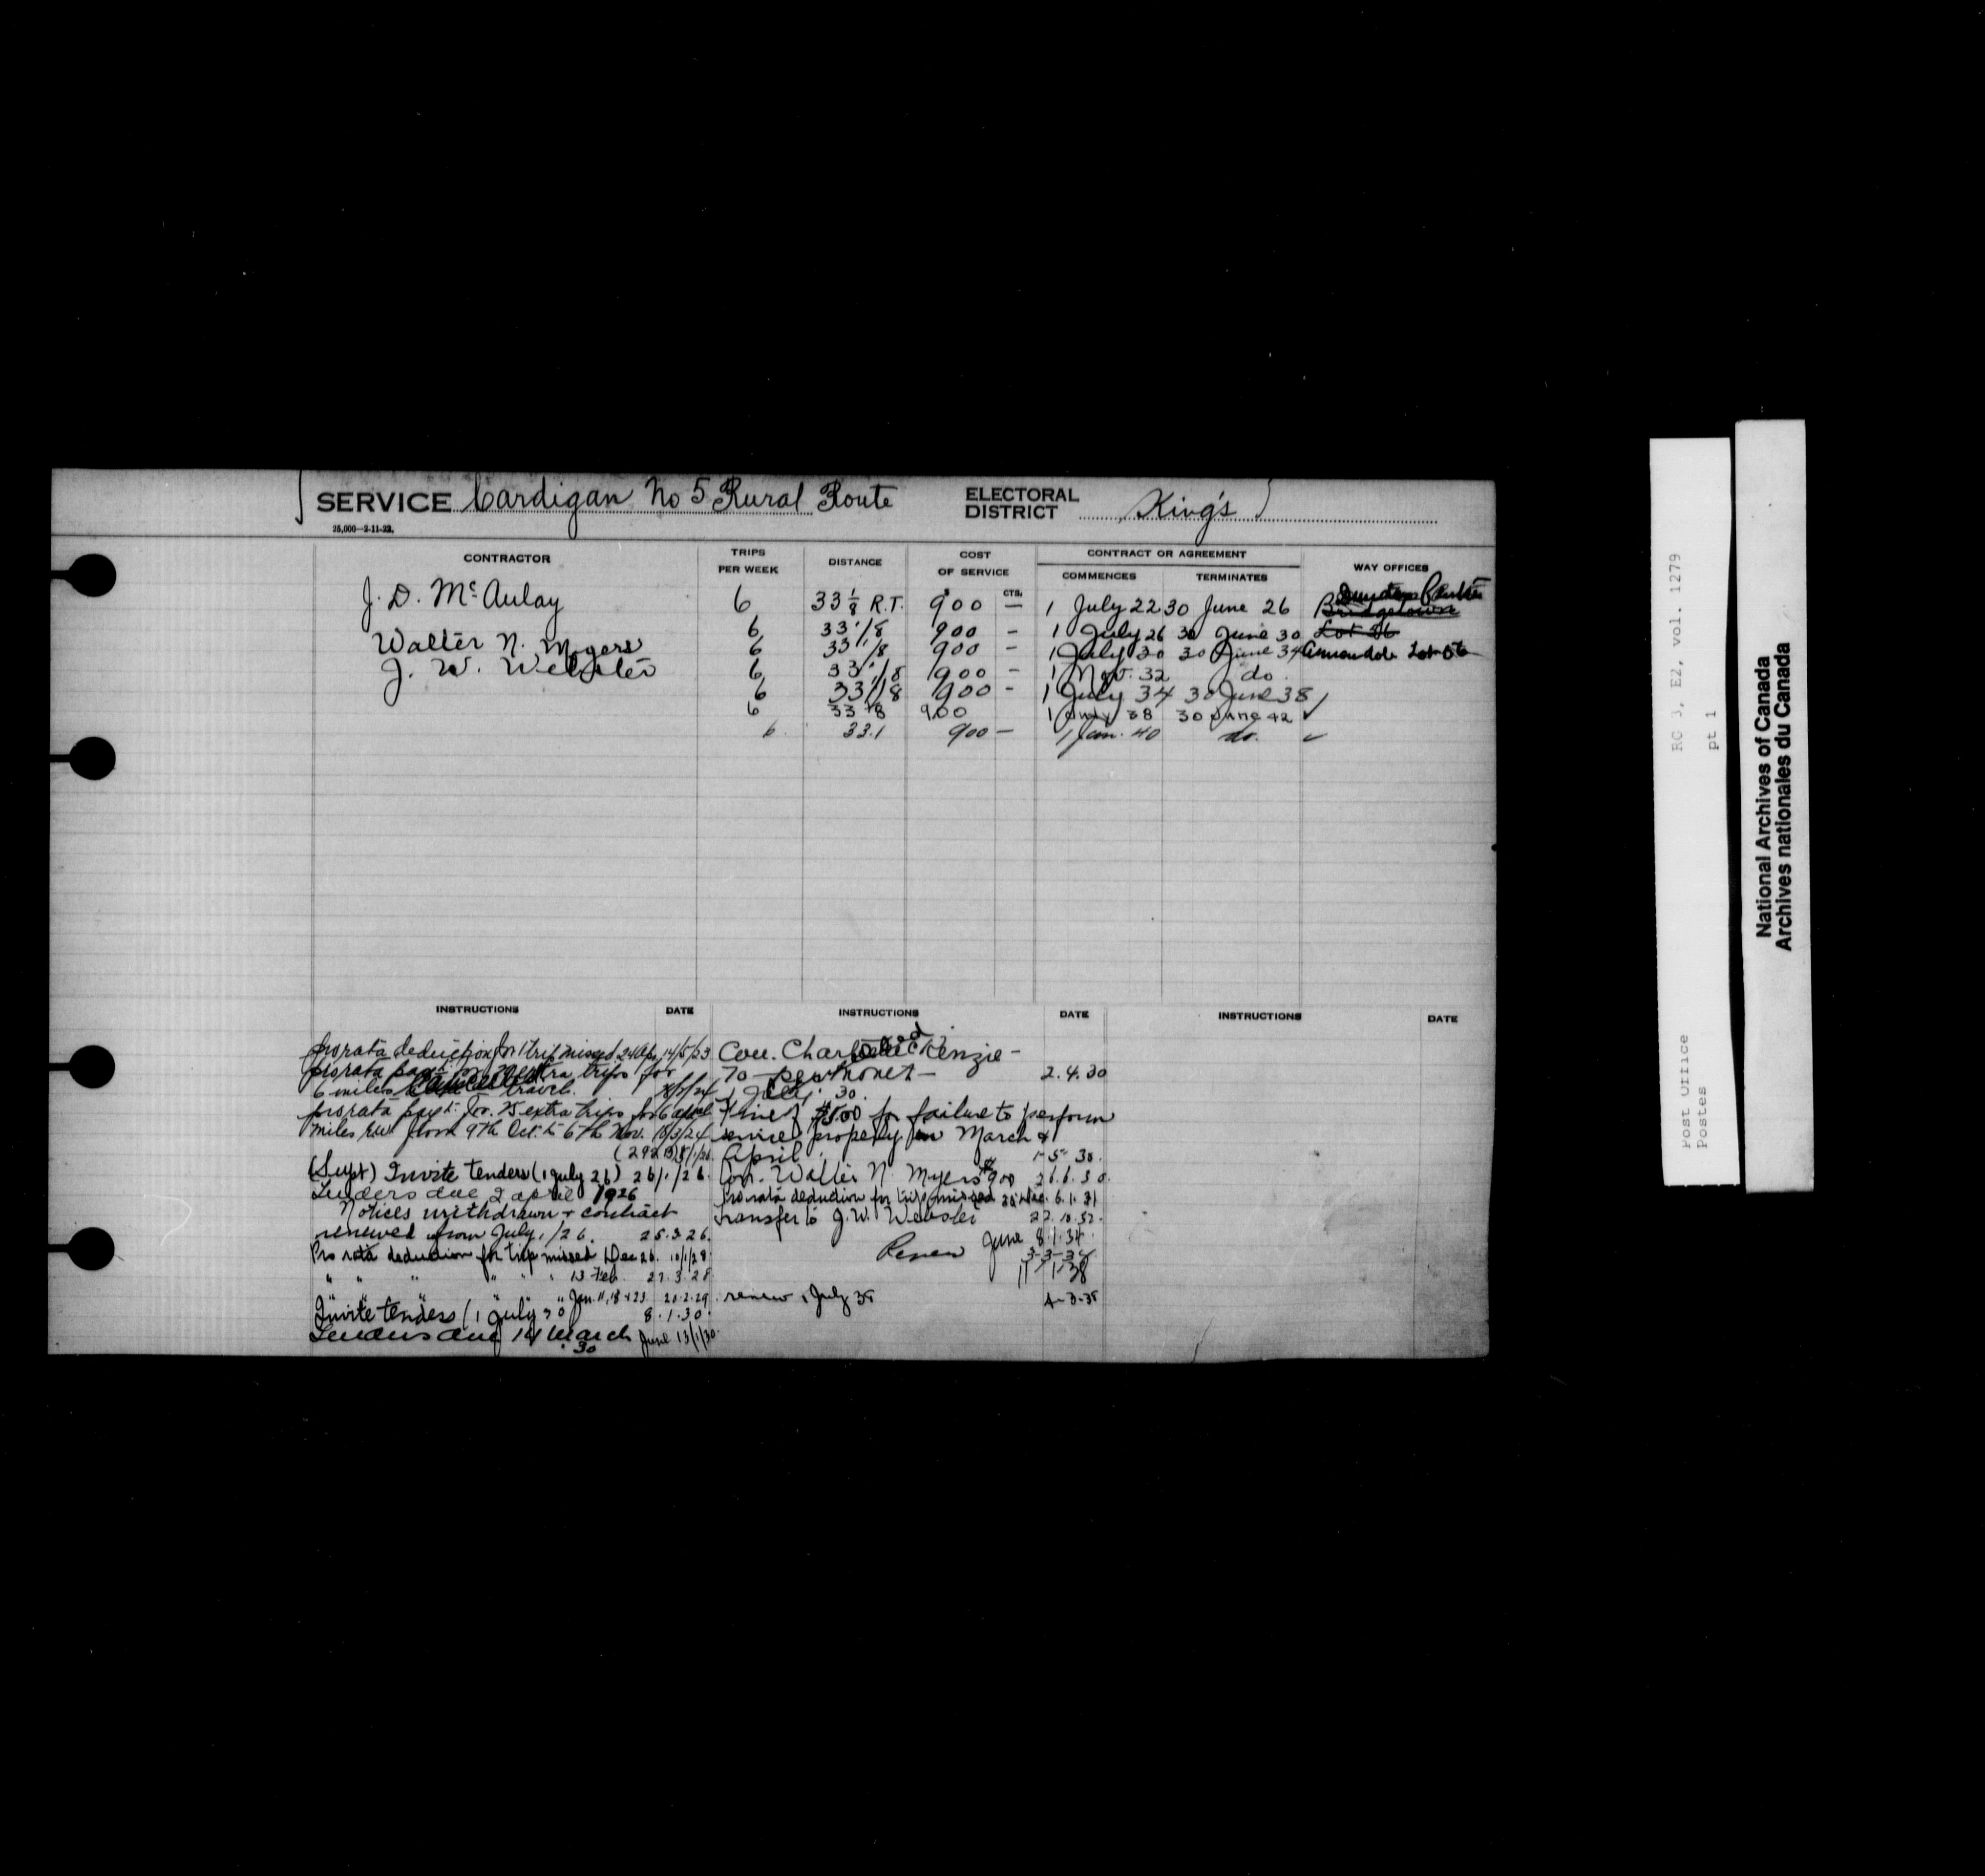 SERVICE Cardigan No 5 Rural Route ELECTORAL DISTRICT King's
25,000—2-11-22.
CONTRACTOR TRIPS PER WEEK DISTANCE COST OF SERVICE CONTRACT OR AGREEMENT WAY OFFICES
$ CTS. COMMENCES TERMINATES
J. D. McAulay 6 33 1/8 R.T. 900 — 1 July 22 30 June 26 Bridgetown
6 33 1/8 900 - 1 July 26 30 June 30 Lot 56
Walter N. Myers 6 33 1/8 900 - 1 July 30 30 June 34 Annandale
J. W. Webster 6 33 1/8 900 - 1 Nov. 32 do
6 33 1/8 900 - 1 July 34 30 June 38 ✓
6 33 1/8 900 1 July 38 30 June 42 ✓
6 33.1 900 — 1 Jan. 40 do. ✓
INSTRUCTIONS DATE
pro rata deduction for 1 trip missed 24 Apr. 14/5/23
pro rata payt. for extra trips for
6 miles travel.
pro rata payt. for 25 extra trips for 6
miles from 9th Oct. to 6th Nov. 18/3/24
(Supt) Invite tenders (1 July 26) 26/1/26.
Tenders due 2 April 1926
Notices withdrawn + contract
renewed from July 1/26. 25.3.26.
Pro rata deduction for trip missed 1 Dec 26. 10/1/28
" " " " " " 13 Feb. 27.3.28
" " " " Jan. 11, 18 + 23 20.2.29
Invite tenders (1 July 30 8.1.30.
Tenders due 14 March 30 June 13/1/30
INSTRUCTIONS DATE
Con. McKenzie —
2.4.30
1 July 30.
Fine of $5.00 for failure to perform
service properly in March &
April. 1-5-30.
Con. Walter N. Myers $900 21.6.30.
Pro rata deduction for trip missed 6.1.31
Transfer to J. W. Webster 22.10.32.
June 8.1.34.
Renew 3-3-34
11/1-38
renew 1 July 38 4-3-38
INSTRUCTIONS DATE
RG 3, E2, vol. 1279
pt 1
Post Office
Postes
National Archives of Canada
Archives nationales du Canada